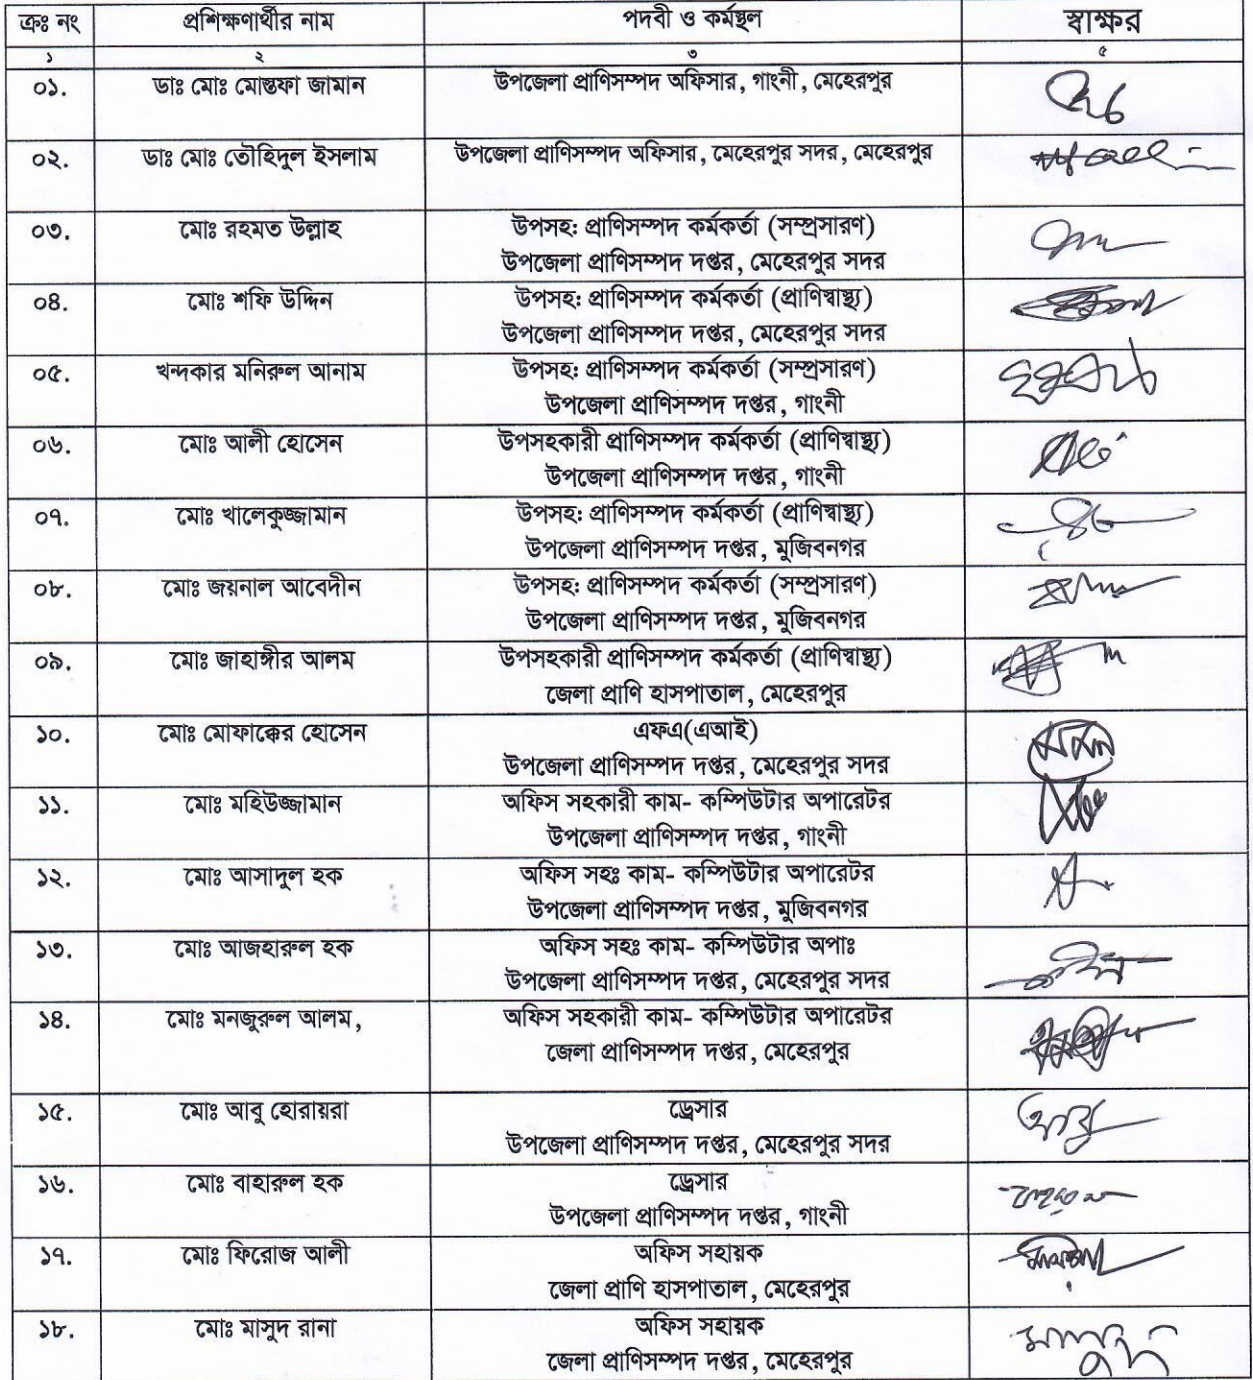 ক্রঃ নং প্রশিক্ষণার্থীর নাম পদবী ও কর্মস্থল স্বাক্ষর
১ ২ ৩ ৫
০১. ডাঃ মোঃ মোস্তফা জামান উপজেলা প্রাণিসম্পদ অফিসার, গাংনী, মেহেরপুর
০২. ডাঃ মোঃ তৌহিদুল ইসলাম উপজেলা প্রাণিসম্পদ অফিসার, মেহেরপুর সদর, মেহেরপুর
০৩. মোঃ রহমত উল্লাহ উপসহ: প্রাণিসম্পদ কর্মকর্তা (সম্প্রসারণ)
উপজেলা প্রাণিসম্পদ দপ্তর, মেহেরপুর সদর
০৪. মোঃ শফি উদ্দিন উপসহ: প্রাণিসম্পদ কর্মকর্তা (প্রাণিস্বাস্থ্য)
উপজেলা প্রাণিসম্পদ দপ্তর, মেহেরপুর সদর
০৫. খন্দকার মনিরুল আনাম উপসহ: প্রাণিসম্পদ কর্মকর্তা (সম্প্রসারণ)
উপজেলা প্রাণিসম্পদ দপ্তর, গাংনী
০৬. মোঃ আলী হোসেন উপসহকারী প্রাণিসম্পদ কর্মকর্তা (প্রাণিস্বাস্থ্য)
উপজেলা প্রাণিসম্পদ দপ্তর, গাংনী
০৭. মোঃ খালেকুজ্জামান উপসহ: প্রাণিসম্পদ কর্মকর্তা (প্রাণিস্বাস্থ্য)
উপজেলা প্রাণিসম্পদ দপ্তর, মুজিবনগর
০৮. মোঃ জয়নাল আবেদীন উপসহ: প্রাণিসম্পদ কর্মকর্তা (সম্প্রসারণ)
উপজেলা প্রাণিসম্পদ দপ্তর, মুজিবনগর
০৯. মোঃ জাহাঙ্গীর আলম উপসহকারী প্রাণিসম্পদ কর্মকর্তা (প্রাণিস্বাস্থ্য)
জেলা প্রাণি হাসপাতাল, মেহেরপুর
১০. মোঃ মোফাক্কের হোসেন এফএ(এআই)
উপজেলা প্রাণিসম্পদ দপ্তর, মেহেরপুর সদর
১১. মোঃ মহিউজ্জামান অফিস সহকারী কাম- কম্পিউটার অপারেটর
উপজেলা প্রাণিসম্পদ দপ্তর, গাংনী
১২. মোঃ আসাদুল হক অফিস সহঃ কাম- কম্পিউটার অপারেটর
উপজেলা প্রাণিসম্পদ দপ্তর, মুজিবনগর
১৩. মোঃ আজহারুল হক অফিস সহঃ কাম- কম্পিউটার অপাঃ
উপজেলা প্রাণিসম্পদ দপ্তর, মেহেরপুর সদর
১৪. মোঃ মনজুরুল আলম, অফিস সহকারী কাম- কম্পিউটার অপারেটর
জেলা প্রাণিসম্পদ দপ্তর, মেহেরপুর
১৫. মোঃ আবু হোরায়রা ড্রেসার আবু
উপজেলা প্রাণিসম্পদ দপ্তর, মেহেরপুর সদর
১৬. মোঃ বাহারুল হক ড্রেসার
উপজেলা প্রাণিসম্পদ দপ্তর, গাংনী
১৭. মোঃ ফিরোজ আলী অফিস সহায়ক
জেলা প্রাণি হাসপাতাল, মেহেরপুর
১৮. মোঃ মাসুদ রানা অফিস সহায়ক
জেলা প্রাণিসম্পদ দপ্তর, মেহেরপুর